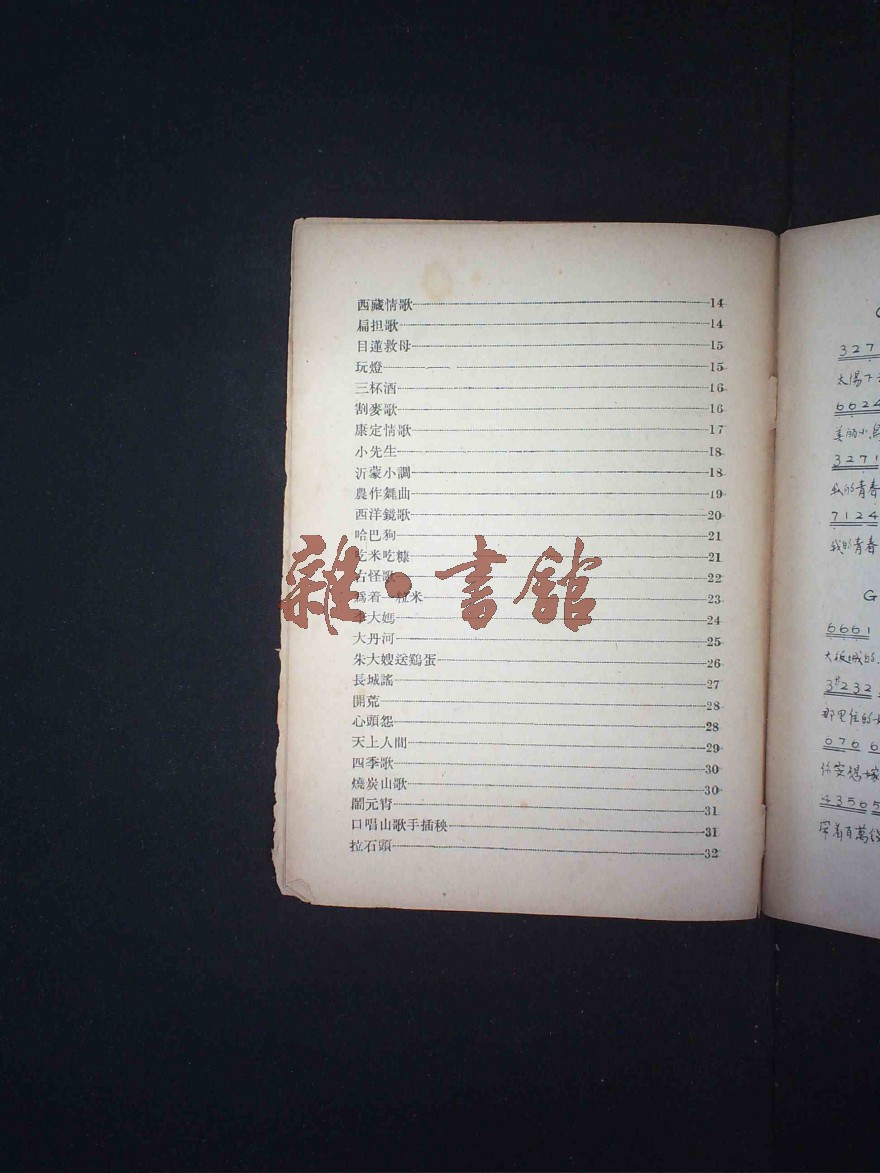 西藏情歌 14
扁担歌 14
目蓮救母 15
玩燈 15
三杯酒 16
割麥歌 16
康定情歌 17
小先生 18
沂蒙小調 18
農作舞曲 19
西洋鏡歌 20
哈巴狗 21
吃米吃糠 21
古怪歌 22
爲着一粒米 23
李大媽 24
大丹河 25
朱大嫂送鷄蛋 26
長城謠 27
開荒 28
心頭怨 28
天上人間 29
四季歌 30
燒炭山歌 30
鬧元宵 31
口唱山歌手插秧 31
拉石頭 32
雜·書館
3 2 7
太陽下
6 6 2 4
美丽小鳥
3 2 7 1
我的青春
7 1 2 4
我的青春
G
6 6 6 1
大坂城的
3 #2 3 2
那里住的
0 7 6 6
你要想嫁
4 3 5 6 5
帶着百萬錢